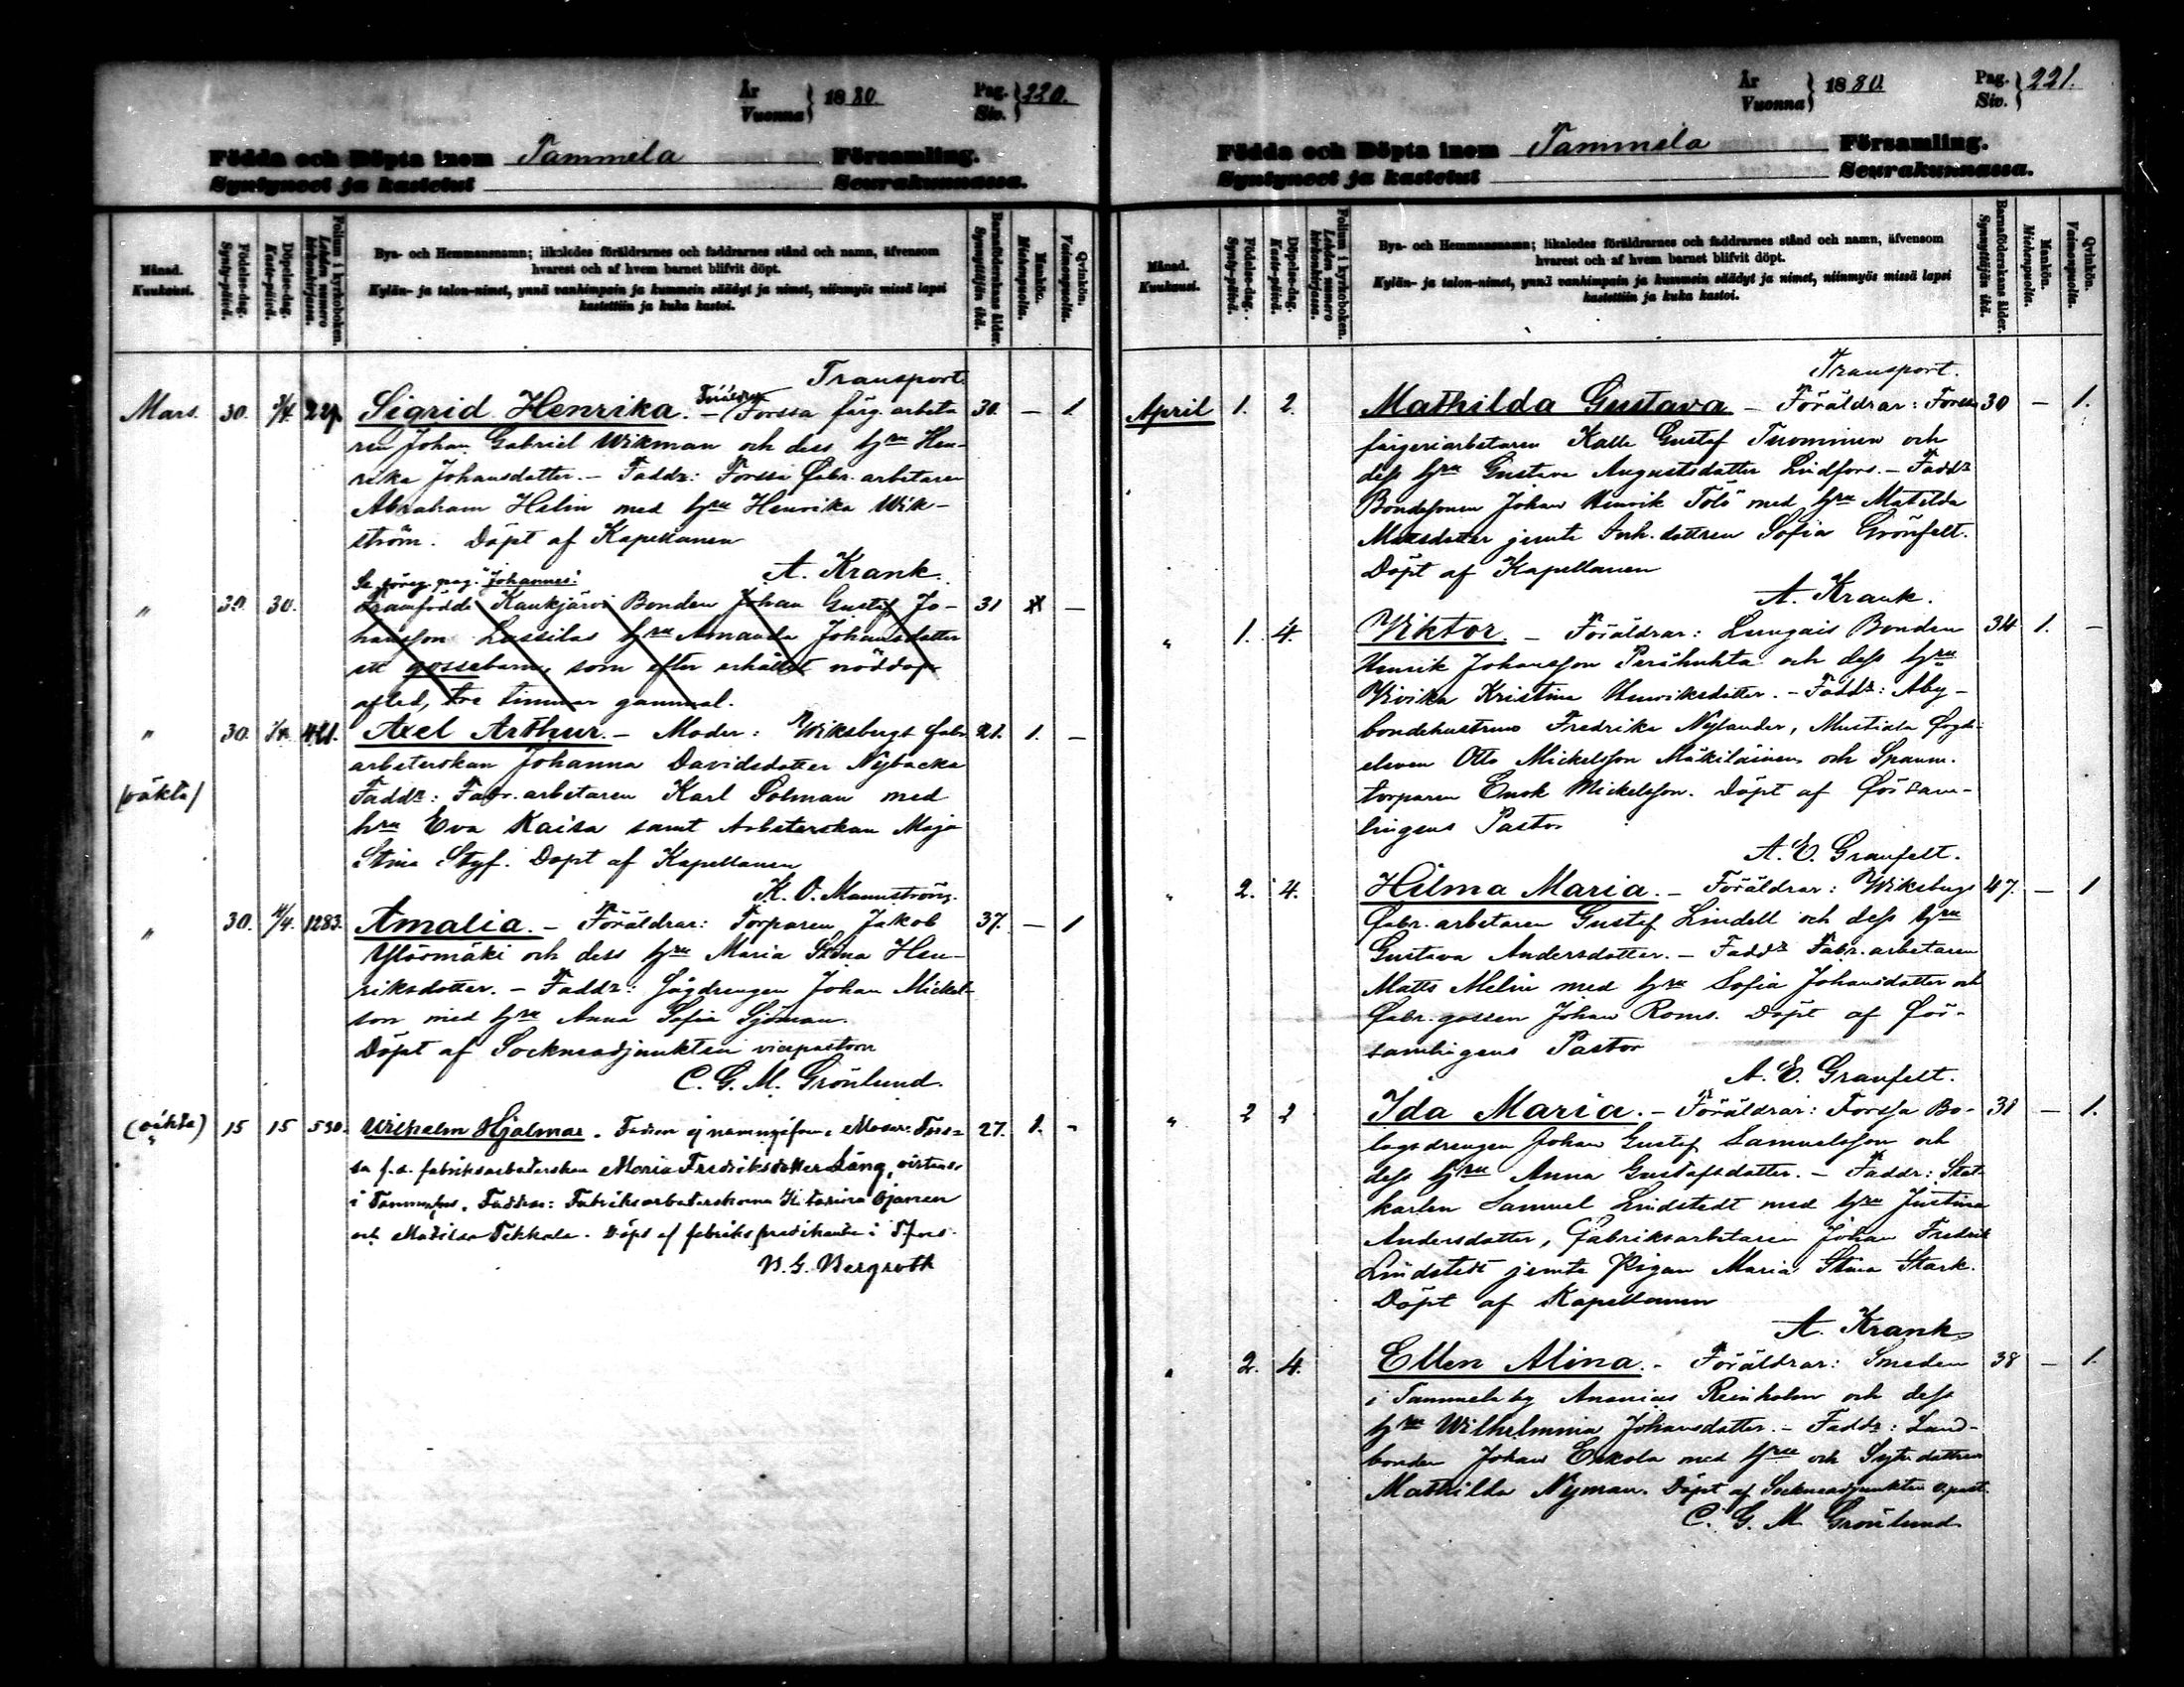 År
Vuonna } 1880. Pag.
Siv. } 220.
Födda och Döpta inom Tammela Församling.
Syntyneet ja kastetut Seurakunnassa.
Månad.
Kuukausi.
Födelse-dag.
Synty-päivä.
Döpelse-dag.
Kaste-päivä.
Folium i kyrkoboken.
Lehden numero
kirkonkirjassa.
Bya- och Hemmansnamn; likaledes föräldrarnes och faddrarnes stånd och namn, äfvensom
hvarest och af hvem barnet blifvit döpt.
Kylän- ja talon-nimet, ynnä vanhimpain ja kummein säädyt ja nimet, niinmyös missä lapsi
kastettiin ja kuka kastoi.
Barnaföderskans ålder.
Synnyttäjän ikä.
Mankön.
Miehenpuolta.
Qvinkön.
Vaimonpuolta.
Transport.
Mars. 30. Sigrid Henrika. – Forssa färg. arbeta 30. – 1.
ren Johan Gabriel Wikman och dess hru Hen-
rika Johansdotter. – Faddr: Forssa Fabr. arbetaren
Abraham Helin med hru Henrika Wik-
ström. Döpt af Kapellanen
A. Krank.
Se föreg. pag. "Johannes".
" 30. 30. Framfödde Kaukjärvi Bonden Johan Gustaf Jo- 31 –
hansson Lassilas hru Amanda Johansdotter
ett gossebarn, som efter erhållet nöddop
afled, tre timmar gammal.
" 30. 1/4. 421. Axel Arthur. – Moder: Wiksbergs fabr. 21. 1. –
arbeterskan Johanna Davidsdotter Nybacka
(oäkta) Faddr: Fabr. arbetaren Karl Solman med
hru Eva Kaisa samt Arbeterskan Maja
Stina Styf. Döpt af Kapellanen
K. O. Mannström.
" 30. 4/4. 1283. Amalia. – Föräldrar: Torparen Jakob 37. – 1
Ylörmäki och dess hru Maria Stina Hen-
riksdotter. – Faddr: Sågdrengen Johan Mickel-
son med hru Anna Sofia Sjöman.
Döpt af Socknеadjunkten vicepastorn
C. G. M. Grönlund.
(oäkta) " 15 15 530. Wilhelm Hjalmar. Fadren ej namngifven. Moder: Fors- 27. 1. -
sa f.d. fabriksarbeterskan Maria Fredriksdotter Läng, vistas
i Tammerfors. Faddrar: Fabriksarbeterskorna Katarina Ojanen
och Matilda Tekkala. Döpt af fabrikspredikanten i T:fors
V. G. Bergroth
År
Vuonna } 1880. Pag.
Siv. } 221.
Födda och Döpta inom Tammela Församling.
Syntyneet ja kastetut Seurakunnassa.
Månad.
Kuukausi.
Födelse-dag.
Synty-päivä.
Döpelse-dag.
Kaste-päivä.
Folium i kyrkoboken.
Lehden numero
kirkonkirjassa.
Bya- och Hemmansnamn; likaledes föräldrarnes och faddrarnes stånd och namn, äfvensom
hvarest och af hvem barnet blifvit döpt.
Kylän- ja talon-nimet, ynnä vanhimpain ja kummein säädyt ja nimet, niinmyös missä lapsi
kastettiin ja kuka kastoi.
Barnaföderskans ålder.
Synnyttäjän ikä.
Mankön.
Miehenpuolta.
Qvinkön.
Vaimonpuolta.
Transport.
April 1. 2. Mathilda Gustava – Föräldrar: Forssa 30 – 1.
färgeriarbetaren Kalle Gustaf Tuominen och
dess hru Gustava Augustsdotter Lindfors. – Faddr
Bondesonen Johan Henrik Tölö med hru Matilda
Matsdotter jemte Inh. dottren Sofia Grönfelt.
Döpt af Kapellanen
A. Krank.
" 1. 4. Viktor. – Föräldrar: Lungais Bonden 34 1. –
Henrik Johansson Perähuhta och dess hru
Vivika Kristina Henriksdotter. – Faddr: Åby-
bondehustrun Fredrika Nylander, Mustiala Fogde-
eleven Otto Mickelsson Mäkiläinen och Spanm.
torparen Enok Mickelsson. Döpt af Försam-
lingens Pastor
A. E. Granfelt.
" 2. 4. Hilma Maria. – Föräldrar: Wiksbergs 47. – 1
Fabr. arbetaren Gustaf Lindell och dess hru
Gustava Andersdotter. – Faddr Fabr. arbetaren
Matts Melin med hru Sofia Johansdotter och
Fabr. gossen Johan Roms. Döpt af För-
samlingens Pastor
A. E. Granfelt.
" 2 2 Ida Maria. – Föräldrar: Forssa Bo- 31 – 1.
lagsdrengen Johan Gustaf Samuelsson och
dess hru Anna Gustafsdotter. – Faddr: Stat-
karlen Samuel Lindstedt med hru Justina
Andersdotter, Fabriksarbetaren Johan Fredrik
Lindstedt jemte Pigan Maria Stina Stark.
Döpt af Kapellanen
A. Krank
" 2. 4. Ellen Alina. – Föräldrar: Smeden 38 – 1.
i Tammela by Ananias Reinholm och dess
hru Wilhelmina Johansdotter. – Faddr: Land-
bonden Johan Erkola med hru och Sytn. dottren
Mathilda Nyman. Döpt af Socknеadjunkten v. past.
C. G. M. Grönlund